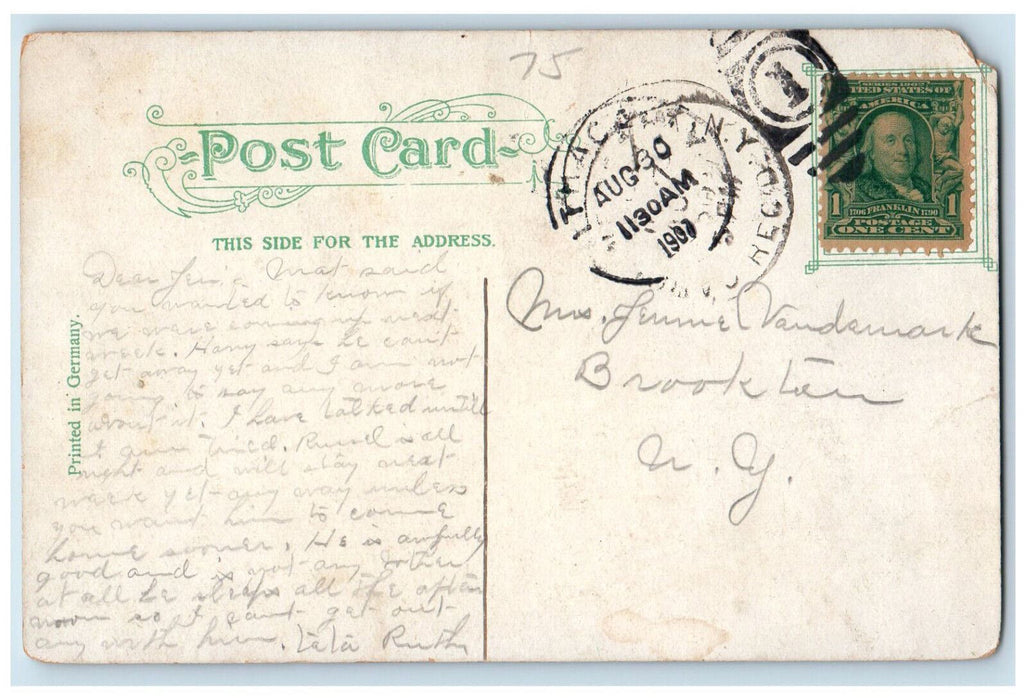 75
Post Card
THIS SIDE FOR THE ADDRESS.
Printed in Germany.
ITHACA N.Y. REC'D
AUG 30
1130 AM
1907
1
SERIES 1902
UNITED STATES OF
AMERICA
1 1706 FRANKLIN 1790 1
POSTAGE
ONE CENT
Dear Jen, - Mat said
you wanted to know if
we were coming up next
week. Harry says he can't
get away yet and I am not
going to say any more
about it. I have talked untill
I am tired. Russel is all
right and will stay next
week yet any way unless
you want him to come
home sooner. He is awfully
good and is not any bother
at all he sleeps all the after
noon so I cant get out
any with him. Ta Ta Ruth
Mrs. Jennie Vandemark
Brookton
N. Y.